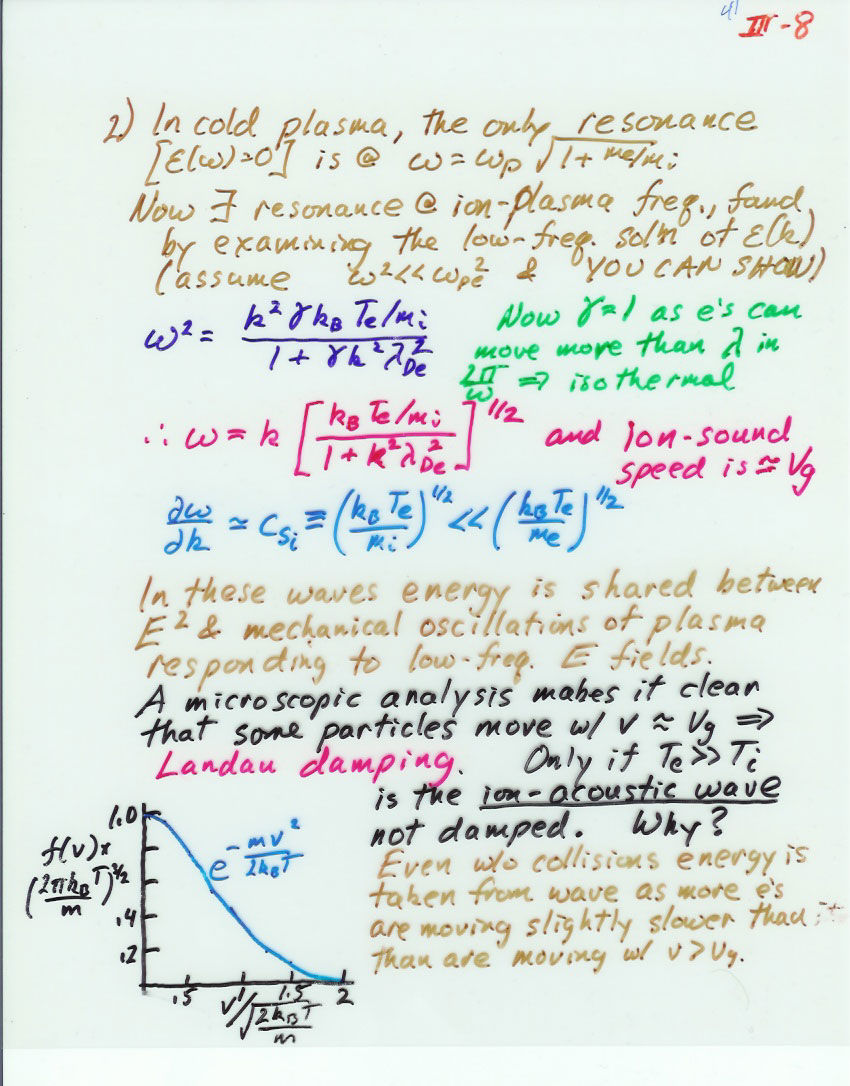 41
III-8
2) In cold plasma, the only resonance
[ε(ω)=0] is @ ω = ωp √1+me/mi
Now ∃ resonance @ ion-plasma freq., found
by examining the low-freq. sol'n of ε(k)
(assume ω² << ωpe² & YOU CAN SHOW)
ω² = k² γ kB Te/mi / 1 + γk² λ²De
Now γ=1 as e's can
move more than λ in
2π/ω ⇒ isothermal
∴ ω = k [kB Te/mi / 1 + k² λ²De]^1/2 and ion-sound
speed is ≅ Vg
∂ω/∂k ≃ Csi ≡ (kB Te/mi)^1/2 << (kB Te/me)^1/2
In these waves energy is shared between
E² & mechanical oscillations of plasma
responding to low-freq. E fields.
A microscopic analysis makes it clear
that some particles move w/ v ≈ Vg ⇒
Landau damping. Only if Te >> Ti
is the ion-acoustic wave
not damped. Why?
Even w/o collisions energy is
taken from wave as more e's
are moving slightly slower than it
than are moving w/ v > Vg.
1.0
f(v) x
(2πkBT/m)^3/2
e^-mv²/2kBT
.4
.2
.5 1 1.5 2
v/√2kBT/m